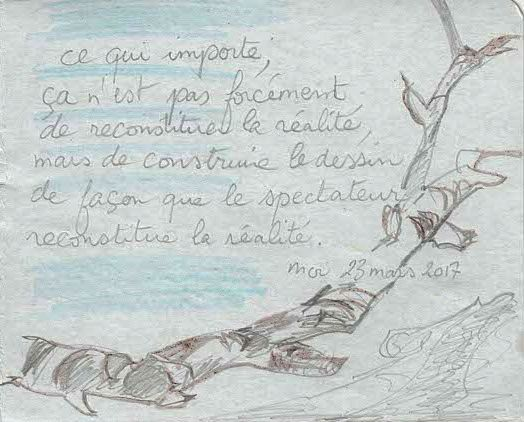 ce qui importe,
ça n'est pas forcément
de reconstituer la réalité,
mais de construire le dessin
de façon que le spectateur
reconstitue la réalité.
moi 23 mars 2017